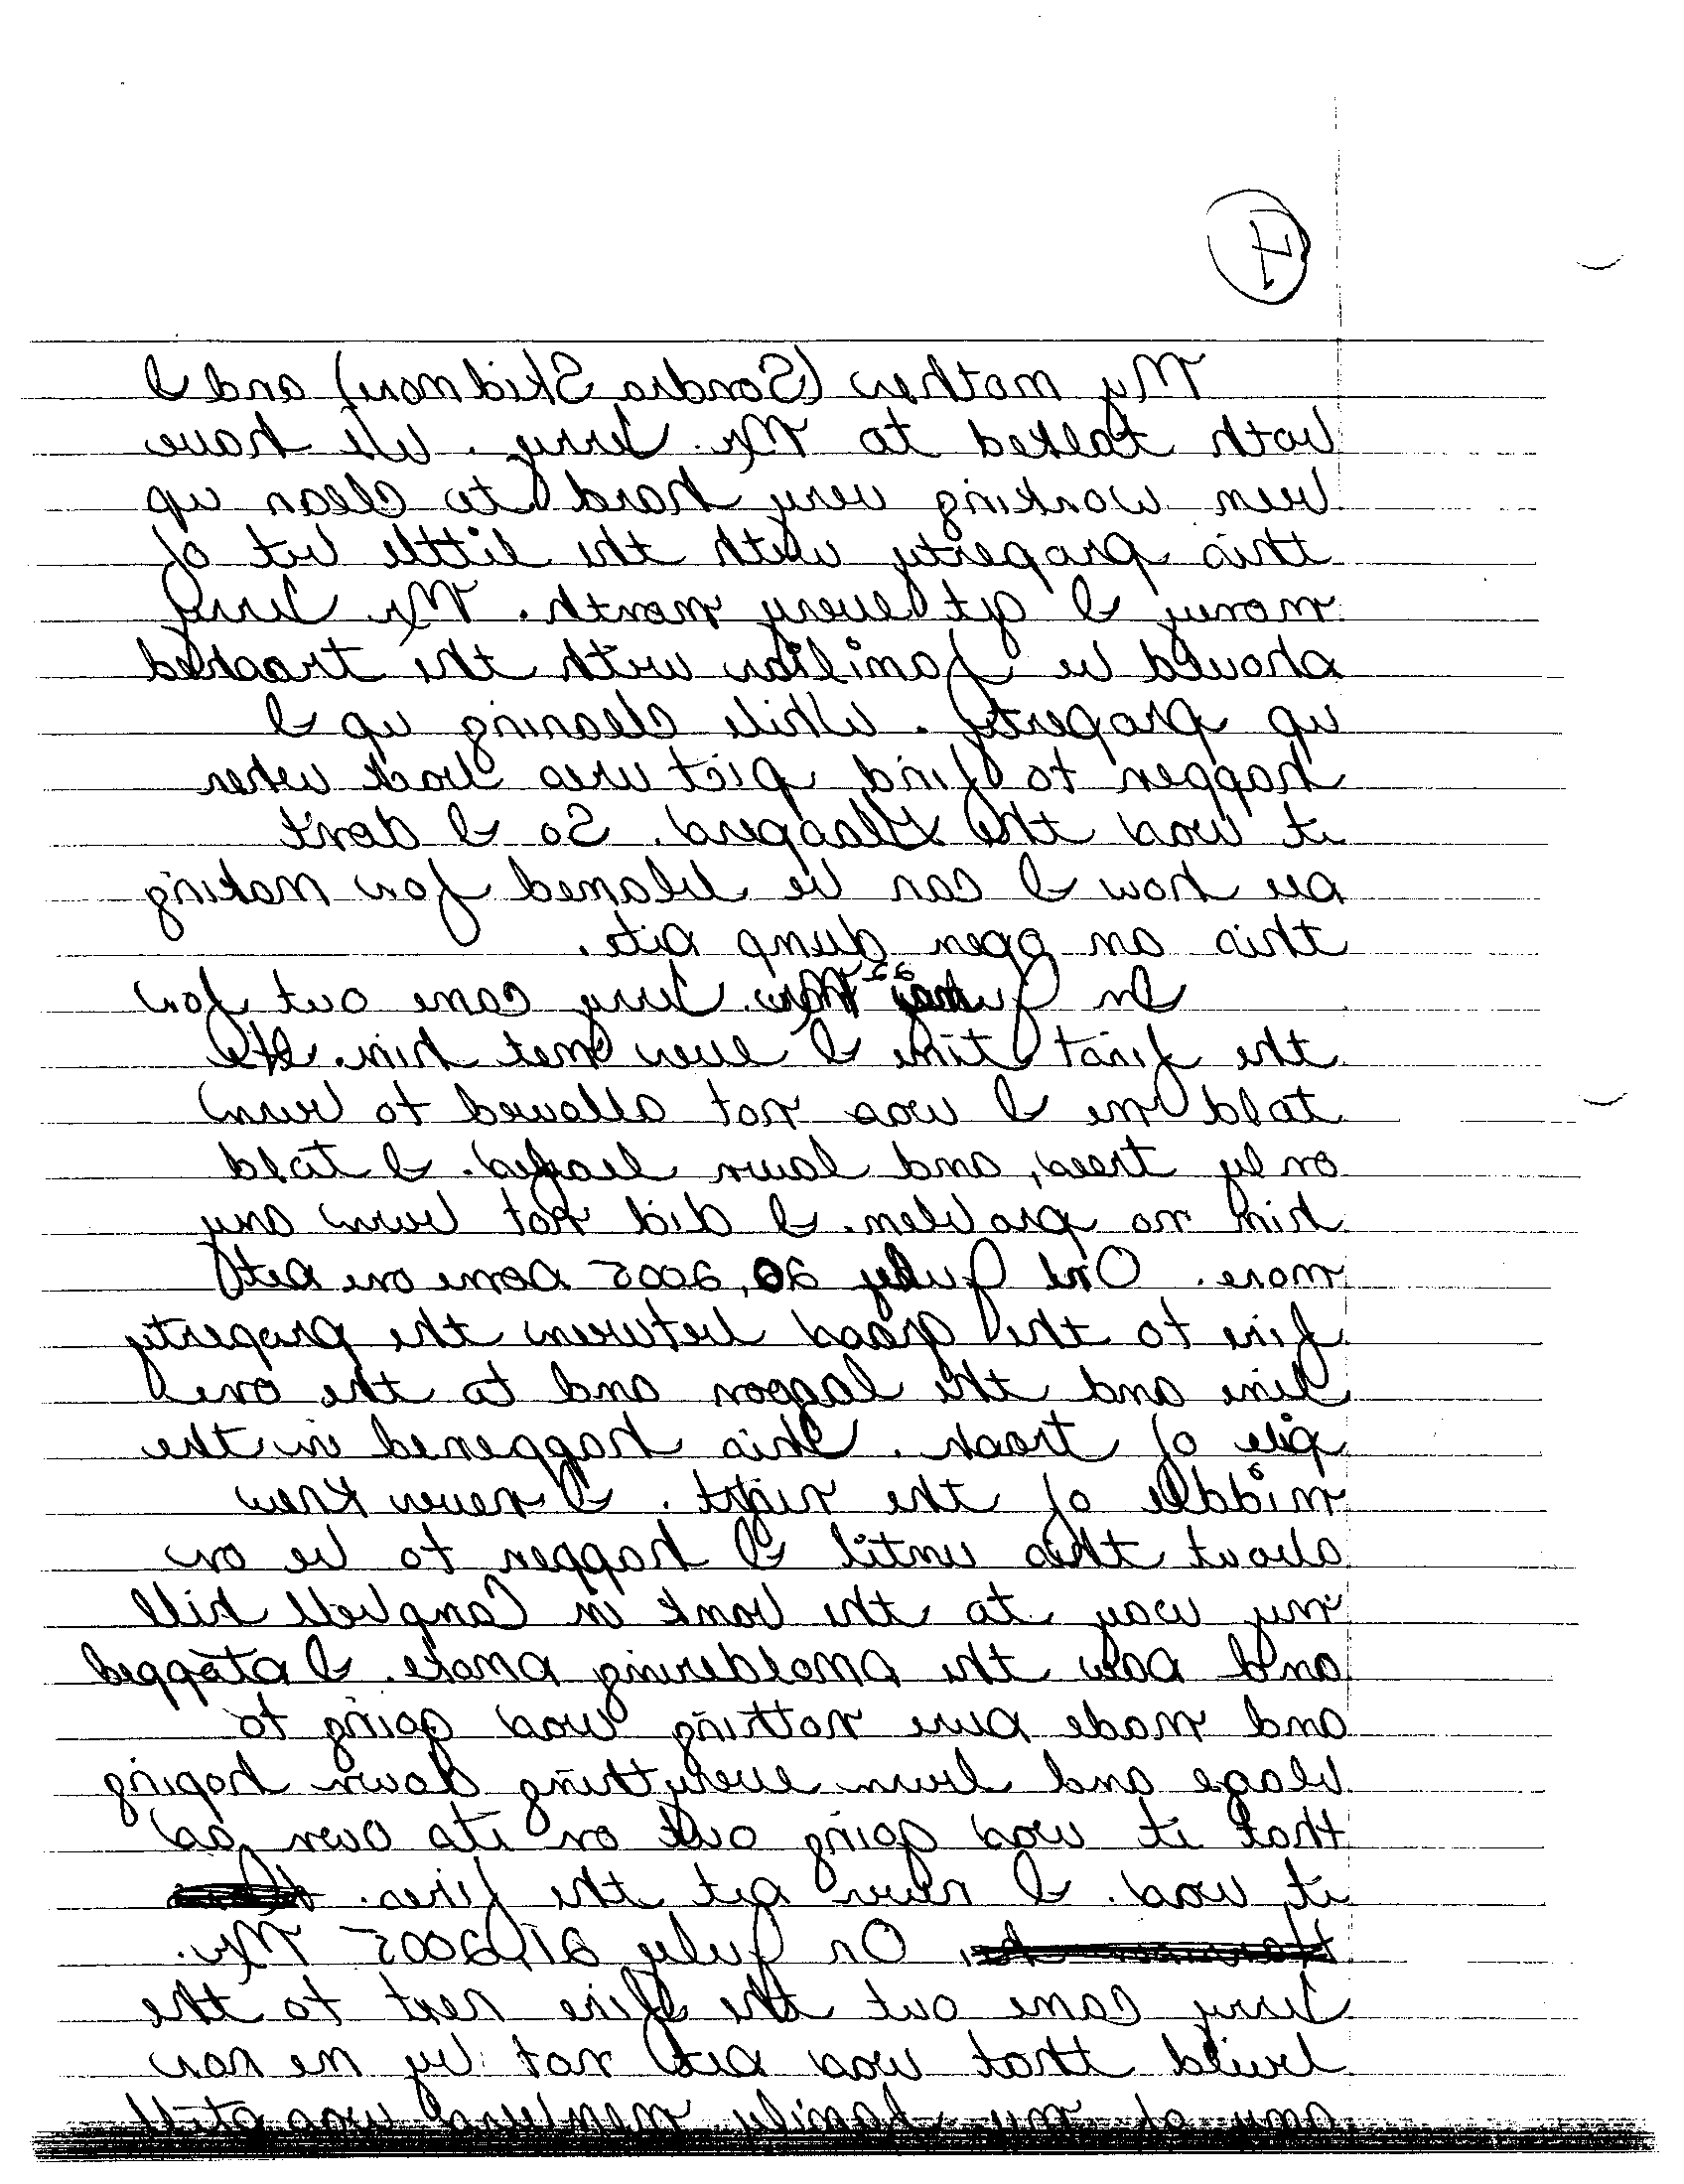 4
My mother (Sondra Skidmore) and I
both talked to Mr. Terry. We have
been working very hard to clean up
this property with the little bit of
money I get every month. Mr. Terry
should be familiar with the trashed
up property. While cleaning up I
happen to find pictures back when
it was the Gleaspers. So I don't
see how I can be blamed for making
this an open dump site.
In Mr. Terry came out for
the first time I ever met him. He
told me I was not allowed to burn
only trees, and lawn leafes. I told
him no problem. I did not burn any
more. On July 20, 2005 some one set
fire to the grass between the property
line and the lagoon and to the one
pile of trash. This happened in the
middle of the night. I never knew
about this until I happen to be on
my way to the bank in Campbell hill
and saw the smoldering smoke. I stopped
and made sure nothing was going to
blage and burn everything down hoping
that it was going out on its own as
it was. I never set the fires.
On July 21, 2005 Mr.
Terry came out the fire next to the
build that was set not by me nor
any of my family members was still